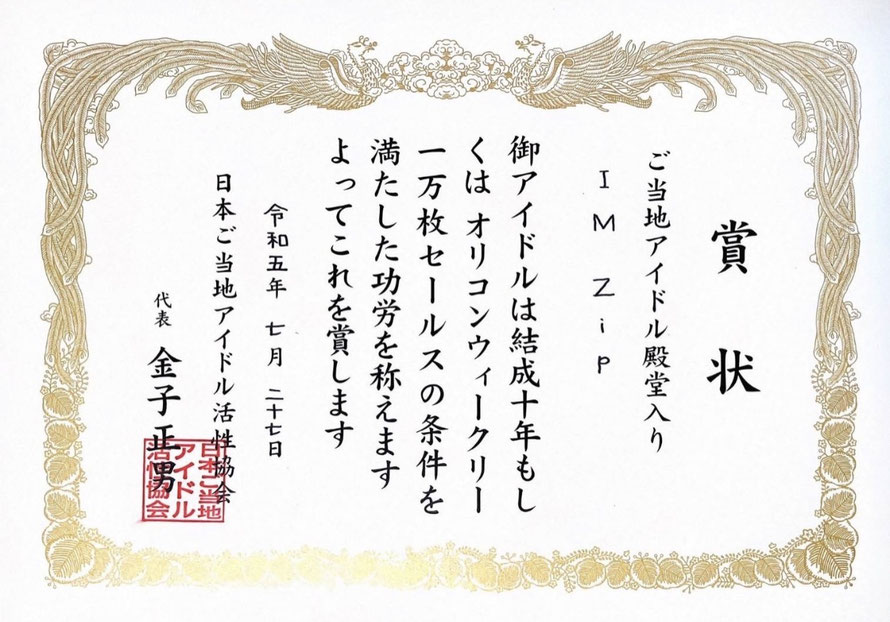 賞状
ご当地アイドル殿堂入り
IM Zip
御アイドルは結成十年もし
くは オリコンウィークリー
一万枚セールスの条件を
満たした功労を称えます
よってこれを賞します
令和五年 七月 二十七日
日本ご当地アイドル活性協会
代表 金子正男
日本ご当地
アイドル
活性協会